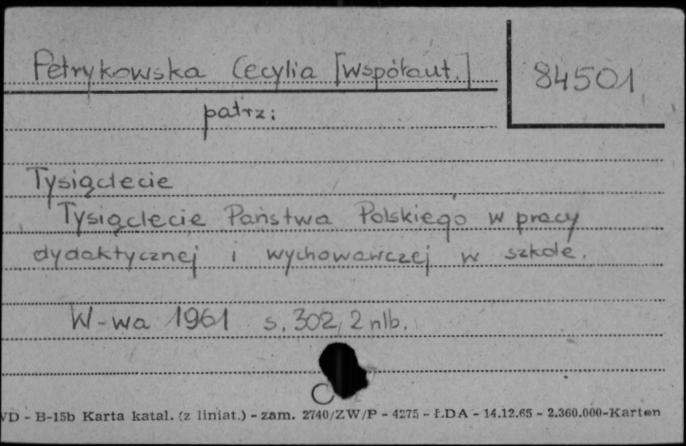 Petrykowska Cecylia [współaut.]
84501
patrz:
Tysiąclecie
Tysiąclecie Państwa Polskiego w pracy
dydaktycznej i wychowawczej w szkole.
W-wa 1961 s. 302, 2 nlb.
C
VD - B-15b Karta katal. (z liniat.) - zam. 2740/ZW/P - 4275 - ŁDA - 14.12.65 - 2.360.000-Karton